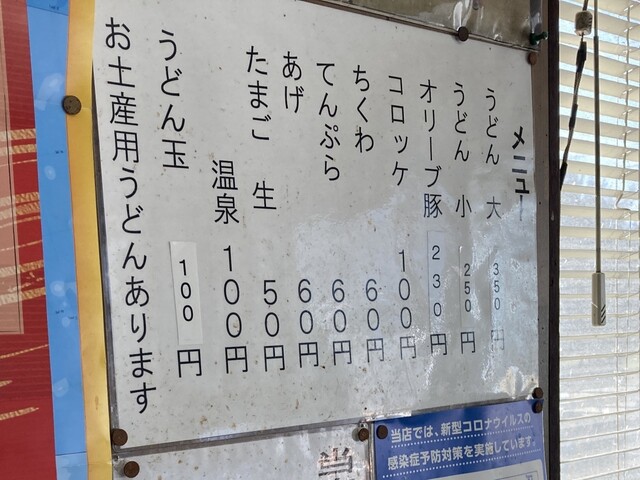 メニュー
うどん 大 350円
うどん 小 250円
オリーブ豚 230円
コロッケ 100円
ちくわ 60円
てんぷら 60円
あげ 60円
たまご 生 50円
温泉 100円
うどん玉 100円
お土産用うどんあります
当店では、新型コロナウイルスの
感染症予防対策を実施しています。
当